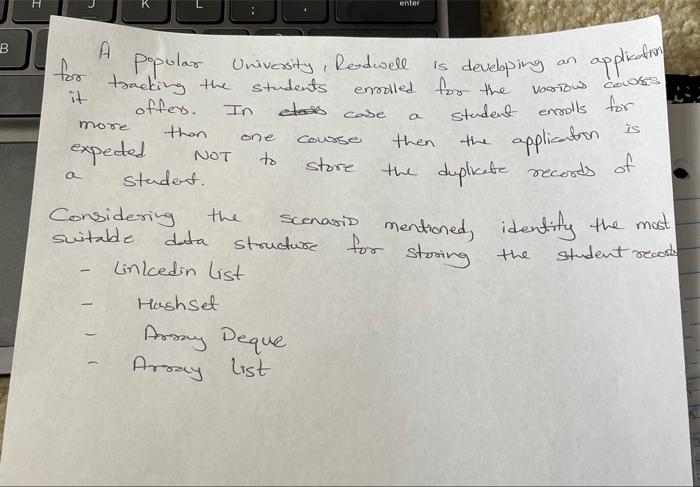 H J K L : ; " ' enter
B
A popular University, Readwell is developing an application
for tracking the students enrolled for the various courses
it offers. In class case a student enrolls for
more than one course then the application is
expected NOT to store the duplicate records of
a student.
Considering the scenario mentioned, identify the most
suitable data structure for storing the student records
- Linlcedin List
- Hashset
- Array Deque
- Array list